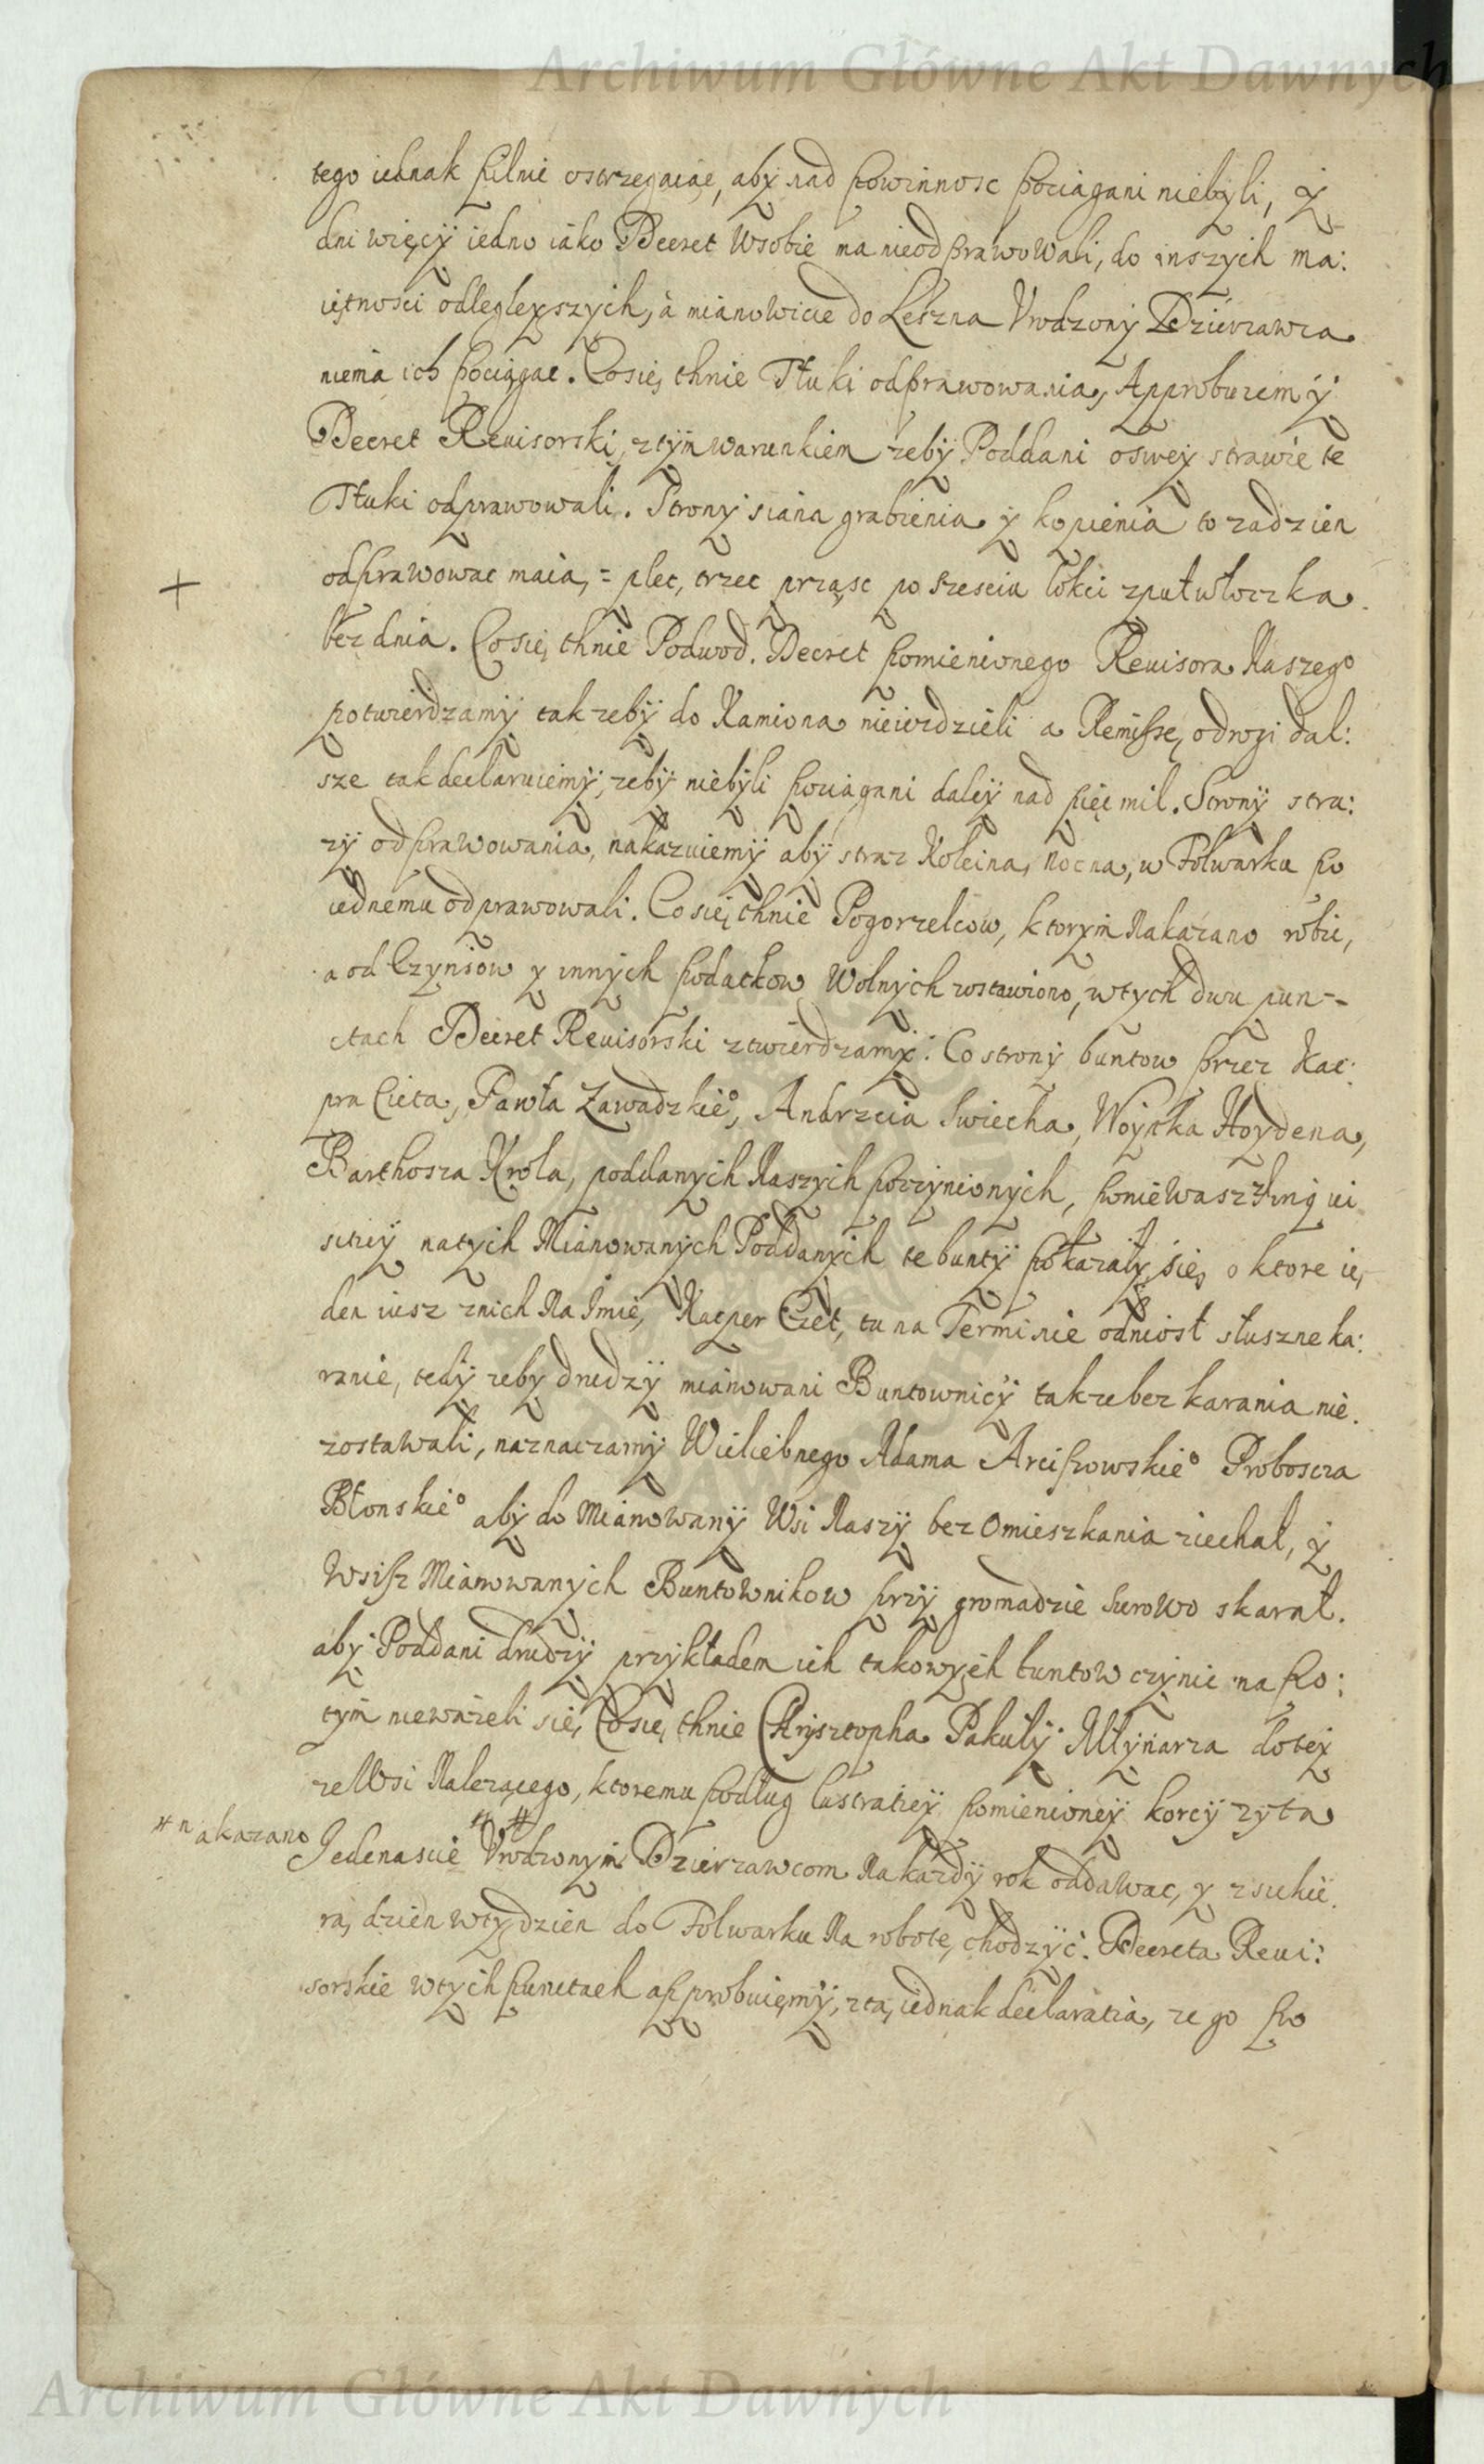 Archiwum Główne Akt Dawnych
tego iednak pilnie ostrzegaiąc, aby nad powinnosc pociągani niebyli, y
dni więcy iedno iako Decret wsobie ma nieodprawowali, do inszych ma:
iętnosci odleglejszych, à mianowicie do Leszna Vrodzony Dzierzawca
niema ich pociągac. Cosię thnie Tłuki odprawowania, Approbuiemy
Decret Reuisorski, ztym warunkiem zeby Poddani oswey strawie te
Tłuki odprawowali. Strony siana grabienia y kopienia to zadzien
odprawowac maią, = plec, trzec prząsc po szesciu łokci zpułwłoczka
+
bez dnia. Cosię thnie Podwod. Decret pomienionego Reuisora Naszego
potwierdzamy tak zeby do Kamiona nieiezdzieli a Remissę odrogi dal:
sze tak declaruiemy, zeby niebyli pociągani daley nad pięc mil. Strony stra:
zy odprawowania, nakazuiemy aby straz Koleiną, nocną, w Folwarku po
iednemu odprawowali. Cosię thnie Pogorzelcow, ktorym Nakazano robic,
a od Czynszow y innych podatkow Wolnych zostawiono, wtych dwu pun=
ctach Decret Reuisorski ztwierdzamy. Co strony buntow przez Kac:
pra Cieta, Pawła Zawadzkie°, Andrzeia Swiecha, Woytka Hoydena,
Barthosza Krola, poddanych Naszych poczynionych, poniewasz
natych Mianowanych Poddanych te bunty pokazały się, o ktore ie,
den iusz znich Na Imię, Kacper Czet, tu na Terminie odniosł słuszne ka:
ranie, tedy zeby drudzy mianowani Buntownicy takze bez karania nie
zostawali, naznaczamy Wielebnego Adama Arciszowskie° Proboscza
Błonskie° aby do Mianowany Wsi Naszy bez Omieszkania ziechał, y
Mianowanych Buntownikow przy gromadzie surowo skarał.
aby Poddani drudzy przykładem ich takowych buntow czynic na po:
tym niewazeli się, Cosię thnie Chrysztopha Pakuły Młynarza dotey
ze Wsi Nalezącego, ktoremu podług lustratiey pomienioney korcy zyta
# nakazano
Jedenascie # # Vrodzonym Dzierzawcom Nakazdy rok oddawac, y zsiekie
rą, dzien wtydzien do Folwarku Na robotę, chodzyc. Decreta Reui:
sorskie wtych punctach approbuiemy, ztą, iednak declaratią, ze go po
Archiwum Główne Akt Dawnych